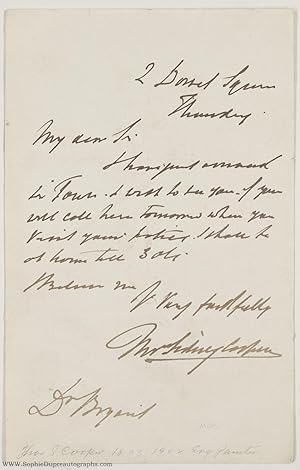 2 Dorset Square
Thursday
My dear Sir
I have just arrived
in Town. I wish to see you. if you
will call here tomorrow when you
visit your I shall be
at home till 3 o'c.
Believe me
Y Very faithfully
Thos Sidney Cooper
Dr Bryant
Thos S Cooper 1803 1902 Eng Painter
www.SophieDupreautographs.com